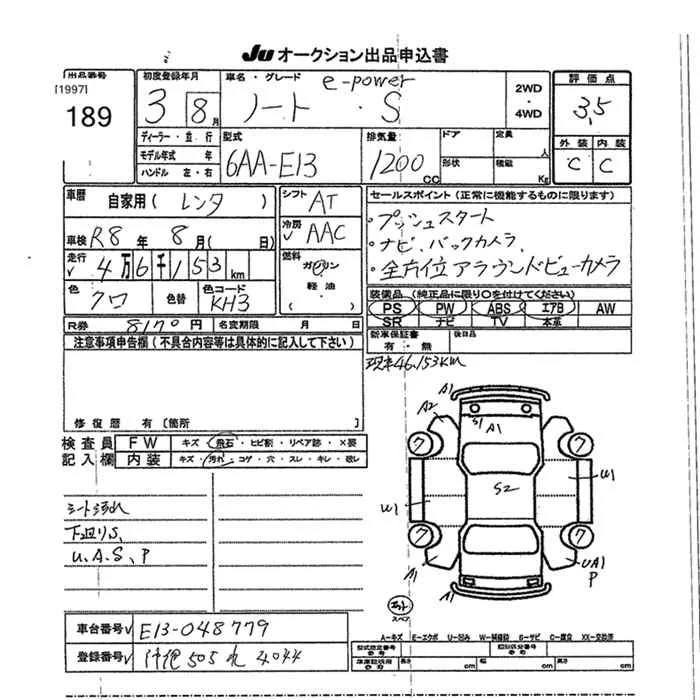 JU オークション出品申込書
出品番号
[1997]
189
初度登録年月
3 8月
車名・グレード
e-power
ノート・S
2WD
・
4WD
評価点
3.5
外装 内装
C C
ディーラー・並行
モデル年式 年
ハンドル 左・右
型式
6AA-E13
排気量
1200 CC
ドア
形状
定員
人
積載
Kg
車歴
自家用(レンタ)
シフト
AT
冷房
AAC
車検 R8年 8月(日)
走行
4万6千153km
燃料
ガソリン
・
軽油
( )
色
クロ
色替
色コード
KH3
R券 8170円 名変期限 月 日
セールスポイント(正常に機能するものに限ります)
・プッシュスタート
・ナビ、バックカメラ、
・全方位アラウンドビューカメラ
装備品(純正品に限り○を付けてください)
PS PW ABS エアB AW
SR ナビ TV 本革
新車保証書
有・無
後日品
現車46,153KM
注意事項申告欄(不具合内容等は具体的に記入して下さい)
修復歴 有[箇所 ]
検査員
記入欄
FW キズ・飛石・ヒビ割・リペア跡・×要
内装 キズ・汚れ・コゲ・穴・スレ・キレ・破レ
シート汚れ
下廻りS、
U、A、S、P
A1
A2
S1
A1
7
7
W1
S2
W1
7
7
A1
UA1
P
A1
スペア
A-キズ E-エクボ U-凹み W-補修跡 S-サビ C-腐食 XX-交換済
車台番号 E13-048779
登録番号 505 れ 4044
型式指定番号
類別区分番号
長さ cm 幅 cm 高さ cm